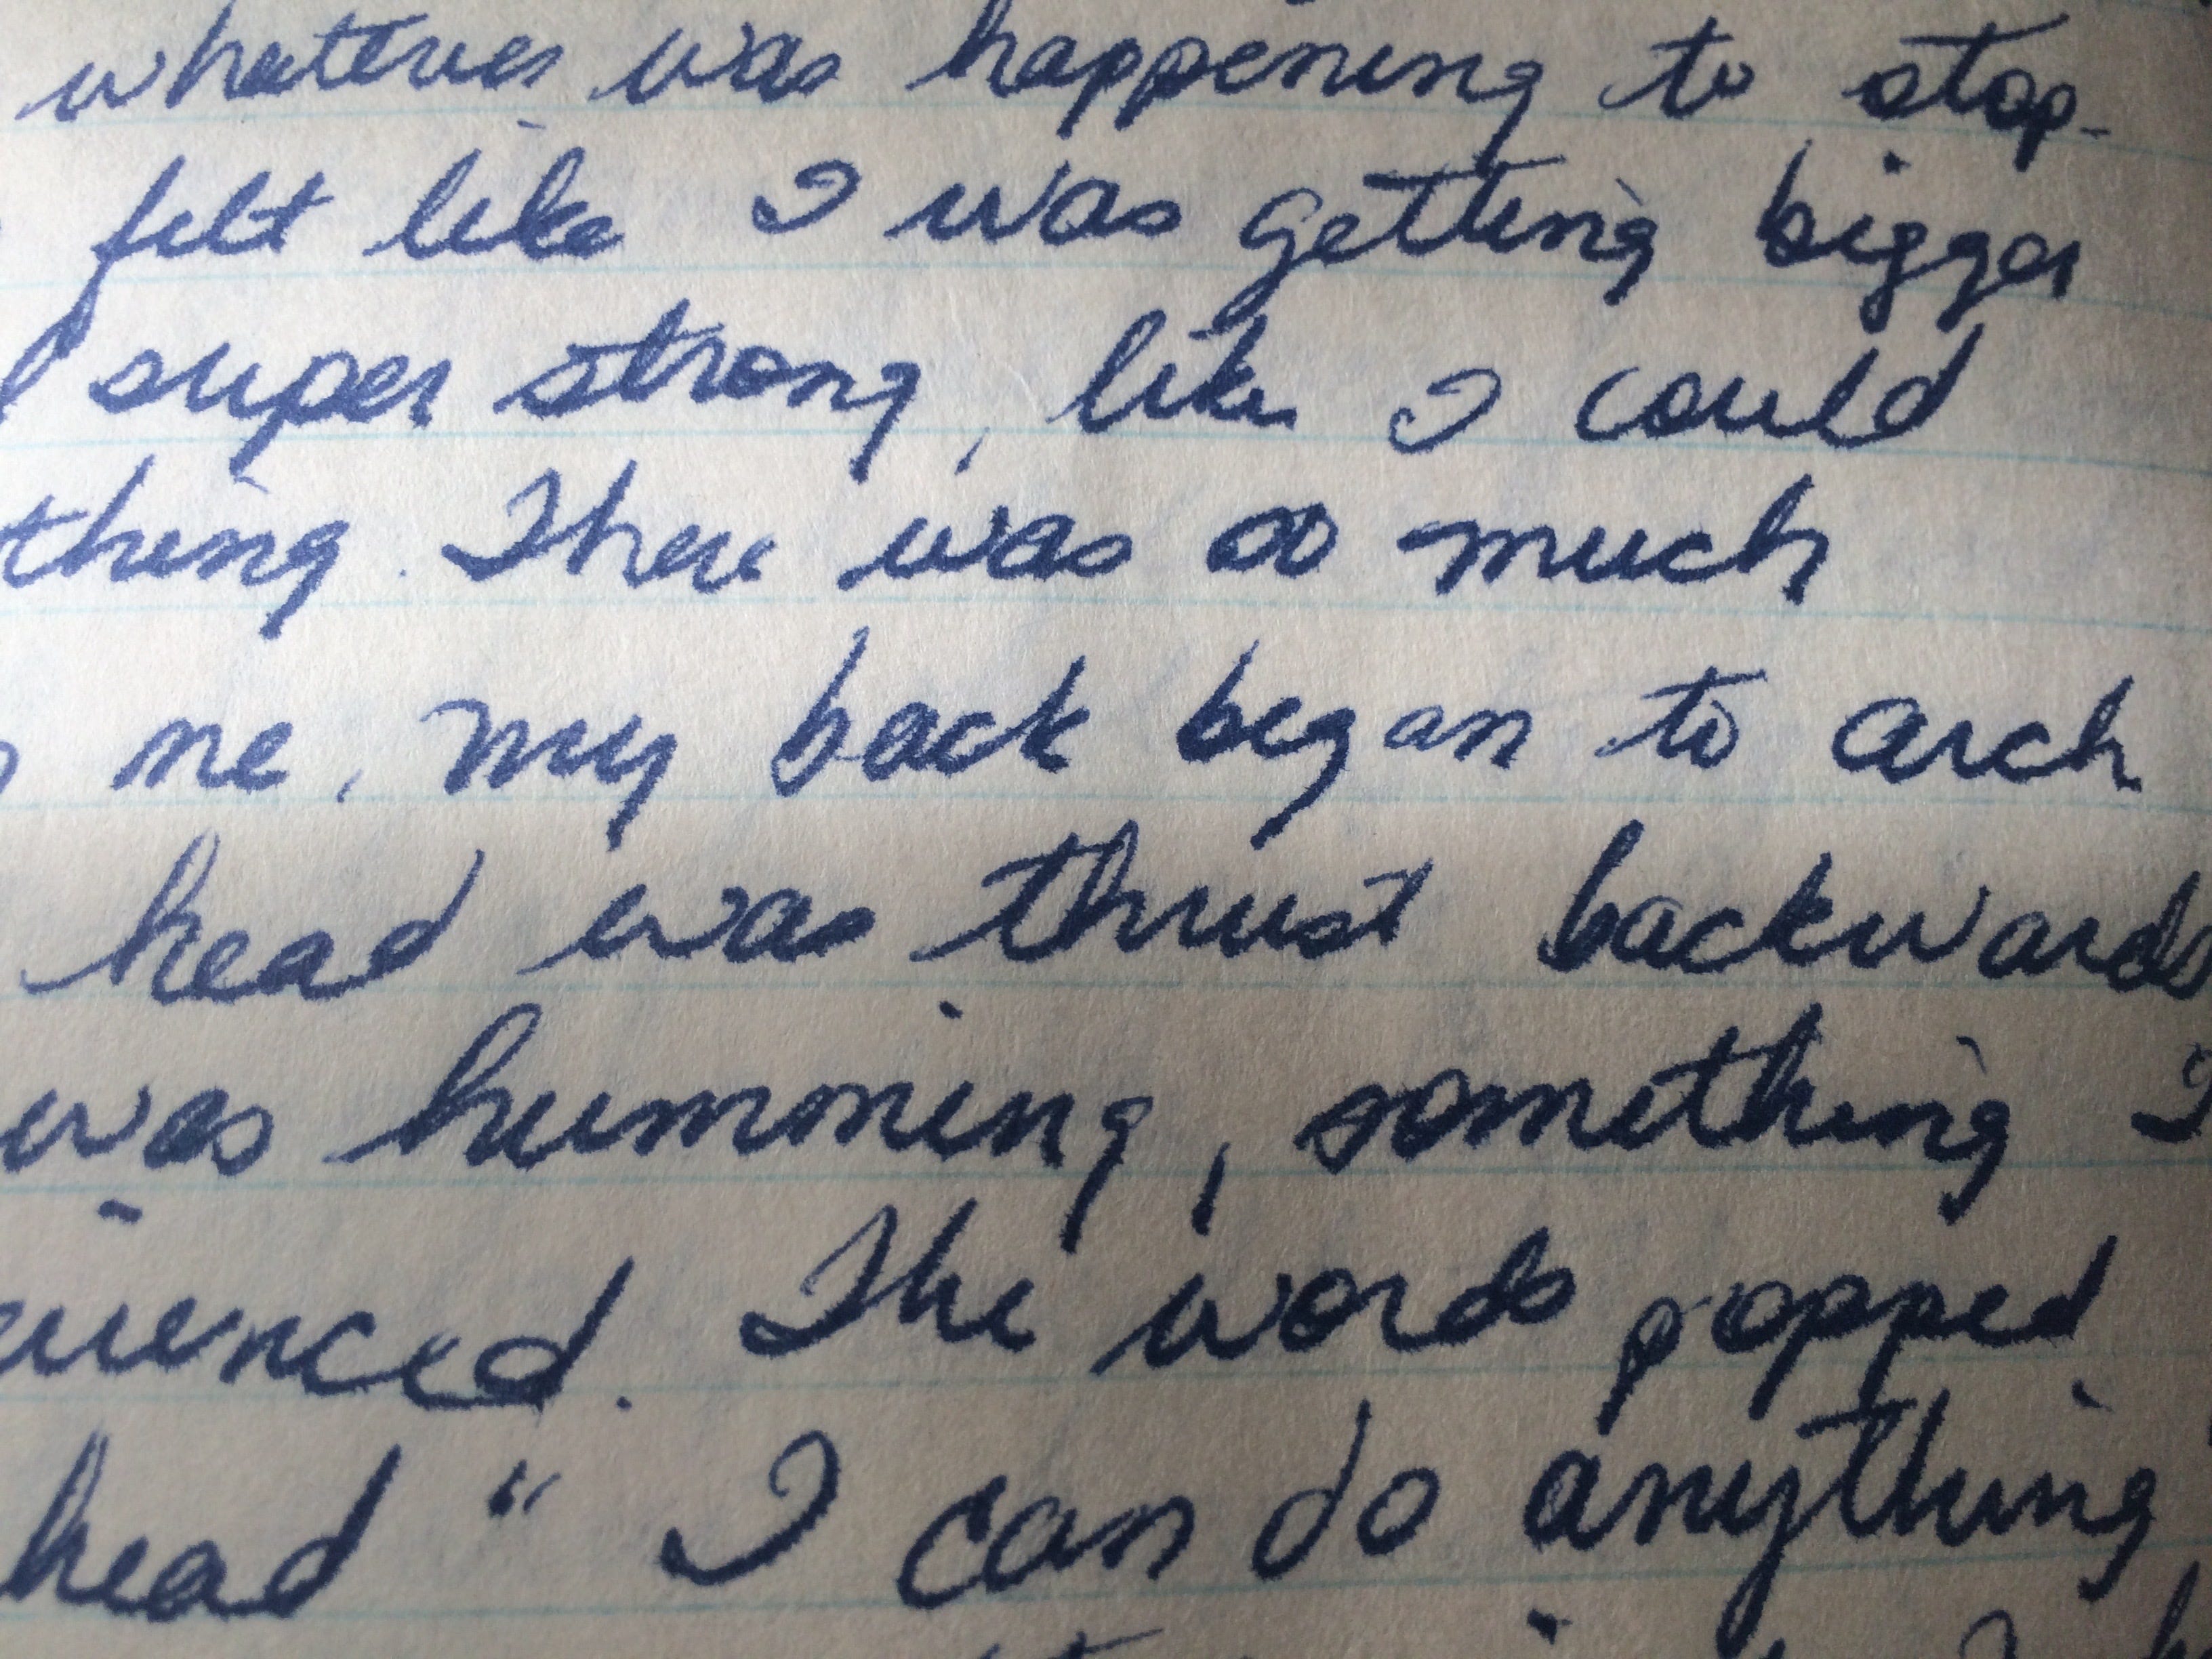 whatever was happening to stop.
felt like I was getting bigger
super strong, like I could
thing. There was so much
me, my back began to arch
head was thrust backwards
was humming, something I
ienced. The words popped
head " I can do anything,